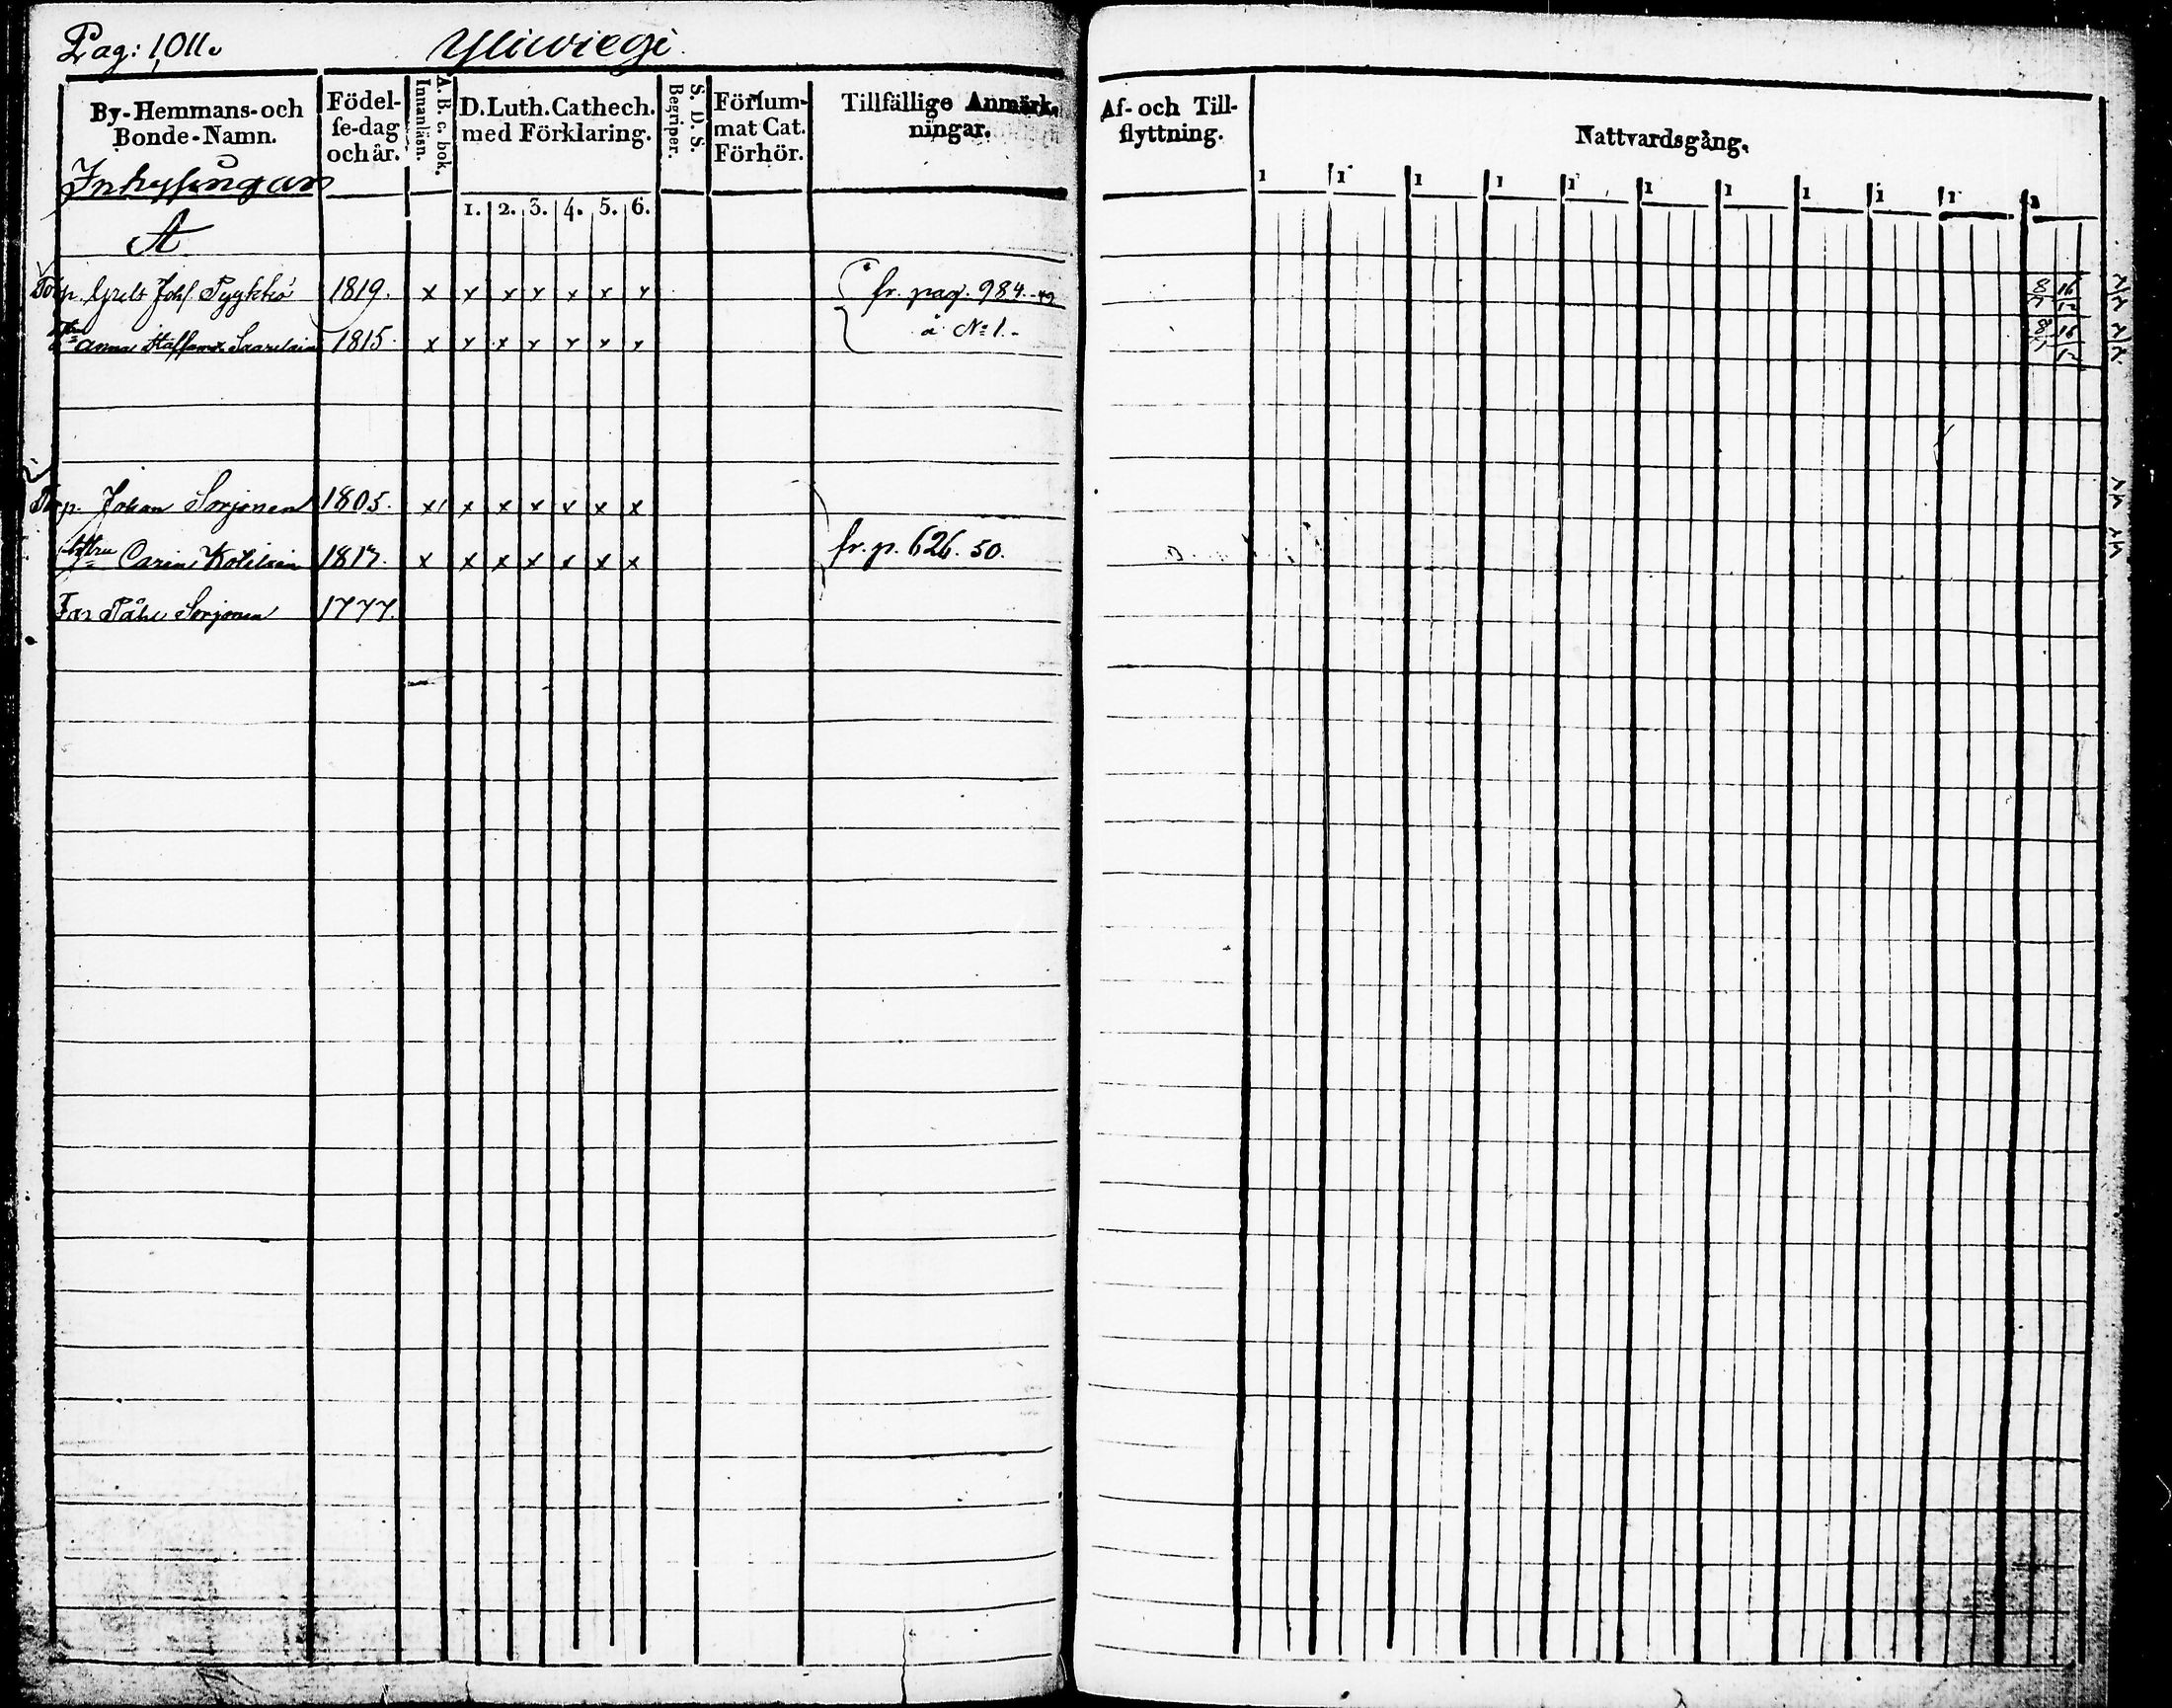 Pag: 1,011.
Yliwiegi.
By-Hemmans-och Bonde-Namn.
Födelse-dag och år.
A. B. c. bok. Innanläsn.
D. Luth. Cathech. med Förklaring.
S. D. S. Begriper.
Förſummat Cat. Förhör.
Tillfällige Anmärkningar.
Af- och Tillflyttning.
Nattvardsgång.
1. 2. 3. 4. 5. 6.
1 1 1 1 1 1 1 1 1 1 1
Inhysingar
A
Torp. Grels Johs. Pyykkö 1819. x x x x x x x fr. pag. 984. 8/7 16/12
Anna Staffansd. Saarelain 1815. x x x x x x x å No 1. 8/7 16/12
Torp. Johan Sorjonen 1805. x x x x x x x
hustru Carin Kotilain 1817. x x x x x x x fr. p. 626. 50.
Far Påhl Sorjonen 1777.